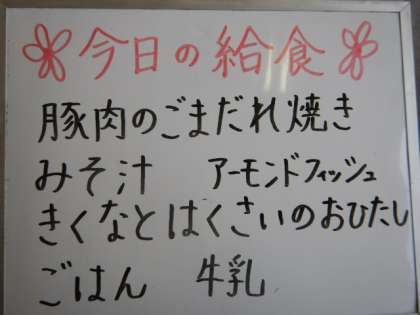 今日の給食
豚肉のごまだれ焼き
みそ汁 アーモンドフィッシュ
きくなとはくさいのおひたし
ごはん 牛乳